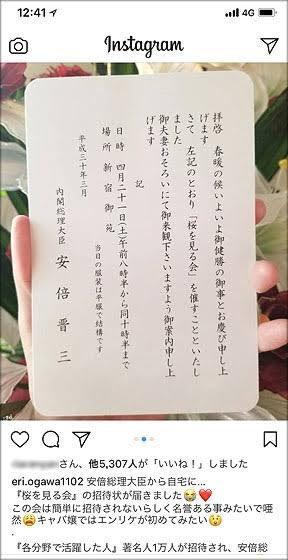 12:41
4G
Instagram
拝啓 春暖の候いよいよ御健勝の御事とお慶び申し上
げます
さて 左記のとおり「桜を見る会」を催すことといたし
ました
御夫妻おそろいにて御来観下さいますよう御案内申し上
げます
記
日時 四月二十一日(土)午前八時半から同十時半まで
場所 新宿御苑
当日の服装は平服で結構です
平成三十年三月
内閣総理大臣 安倍晋三
さん、他5,307人が「いいね！」しました
eri.ogawa1102 安倍総理大臣から自宅に...
『桜を見る会』の招待状が届きました😭❤️
この会は簡単に招待されないらしく名誉ある事みたいで唖
然😩キャバ嬢ではエンリケが初めてみたい😳
.
『各分野で活躍した人』著名人1万人が招待され、安倍総